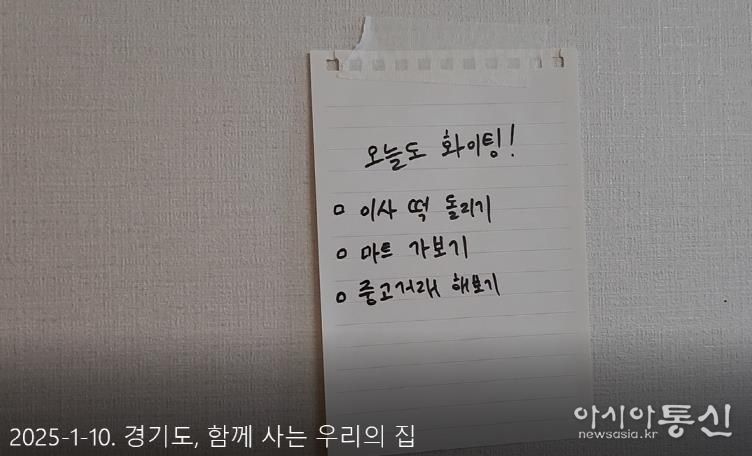 오늘도 화이팅!
이사 떡 돌리기
마트 가보기
중고거래 해보기
아시아통신
newsasia.kr
2025-1-10. 경기도, 함께 사는 우리의 집